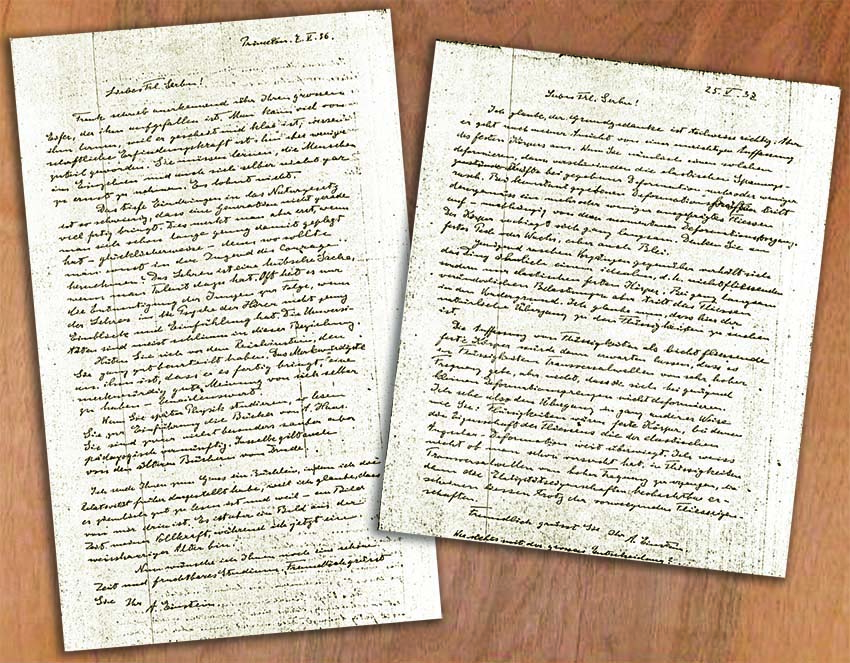 Princeton. 2. V. 36.
Liebes Frl. Serbu!
Frank schrieb anerkennend über Ihren grossen
Eifer, der ihm aufgefallen ist. Man kann viel von
ihm lernen, weil er gescheit und klar ist,
schaftliche Erfindungskraft ist ihm eher weniger
zuteil geworden. Sie müssen lernen, die Menschen
im Einzelnen und auch sich selber nicht gar
zu ernst zu nehmen. Es lohnt nicht.
Das tiefe Eindringen in das Naturgesetz
ist so schwierig, dass eine Generation nicht gerade
viel fertig bringt. Das merkt man aber erst, wenn
man sich schon lange genug damit geplagt
hat – glücklicherweise – denn wo sollte
man sonst in der Jugend die Courage
hernehmen? Das Lehren ist eine hübsche Sache,
wenn man Talent dazu hat. Oft hat es nur
die Entmutigung der Jungen zur Folge, wenn
der Lehrer in die Psyche der Hörer nicht genug
Einblick und Einfühlung hat. Die Universi-
täten sind meist schlimm in dieser Beziehung.
Hüten Sie sich vor dem
Sie ganz gut beurteilt haben. Das Merkwürdigste
an ihm ist, dass er es fertig bringt, eine
merkwürdig gute Meinung von sich selber
zu haben.
Wenn Sie später Physik studieren, so lesen
Sie zur Einführung die Bücher von A. Haas.
Sie sind zwar nicht besonders sauber aber
pädagogisch vernünftig. Dasselbe gilt auch
von den älteren Büchern von Drude.
Ich sende Ihnen zum Gruss ein Büchlein, indem ich die
Relativität früher dargestellt habe, weil ich glaube, dass
es ziemlich gut zu lesen ist und weil ein Bild
von mir drin ist. Es ist aber ein Bild aus der
Zeit meiner Vollkraft, während ich jetzt ein
weisshaariger Alter bin.
Nun wünsche ich Ihnen noch eine schöne
Zeit und fruchtbares Studium. Freundlich grüsst
Sie Ihr A. Einstein.
25. V. 37
Liebes Frl. Serbu!
Ich glaube, der Grundgedanke ist teilweise richtig. Aber
er geht nach meiner Ansicht von einer einseitigen Auffassung
des festen Körpers aus. Wenn Sie nämlich einen solchen
deformieren, dann verschwinden die elastischen Spannungs-
zustände bei gegebener Deformation mehr oder weniger
rasch. Bei konstant gegebenen Deformations tritt
dagegen ein mehr oder weniger ausgeprägtes Fliessen
auf – unabhängig von dem momentanen Deformations
des Körpers, vorausgesetzt ganz langsam. Denken Sie an
festes Pech oder Wachs, aber auch Blei.
Genügend raschen Vorgängen gegenüber verhält sich
das Ding ähnlich einem idealen, d.h. nichtfliessenden
sondern rein elastischen festen Körper. Bei ganz langsam
veränderlichen Belastungen aber tritt das Fliessen
in den Vordergrund. Ich glaube nun, dass hier der
natürliche Übergang zu den Flüssigkeiten zu suchen
ist.
Die Auffassung von Flüssigkeiten als leicht fliessende
feste Körper würde dann erwarten lassen, dass es
in Flüssigkeiten Transversalwellen von sehr hoher
Frequenz gebe, aber nicht, dass sie sich bei genügend
kleinen Deformationszwängen nicht deformieren.
Ich sehe also den Übergang in ganz anderer Weise
wie Sie. Flüssigkeiten wären feste Körper, bei denen
die Eigenschaft des Fliessens die der elastischen
Deformation weit überwiegt. Ich weiss
nicht ob man schon versucht hat, in Flüssigkeiten
Transversalwellen von hoher Frequenz zu erzeugen, in
denen die Elastizitätseigenschaften
scheinen lassen trotz der vorwiegenden Fliesseigen-
schaften.
Freundlich grüsst Sie Ihr A. Einstein.